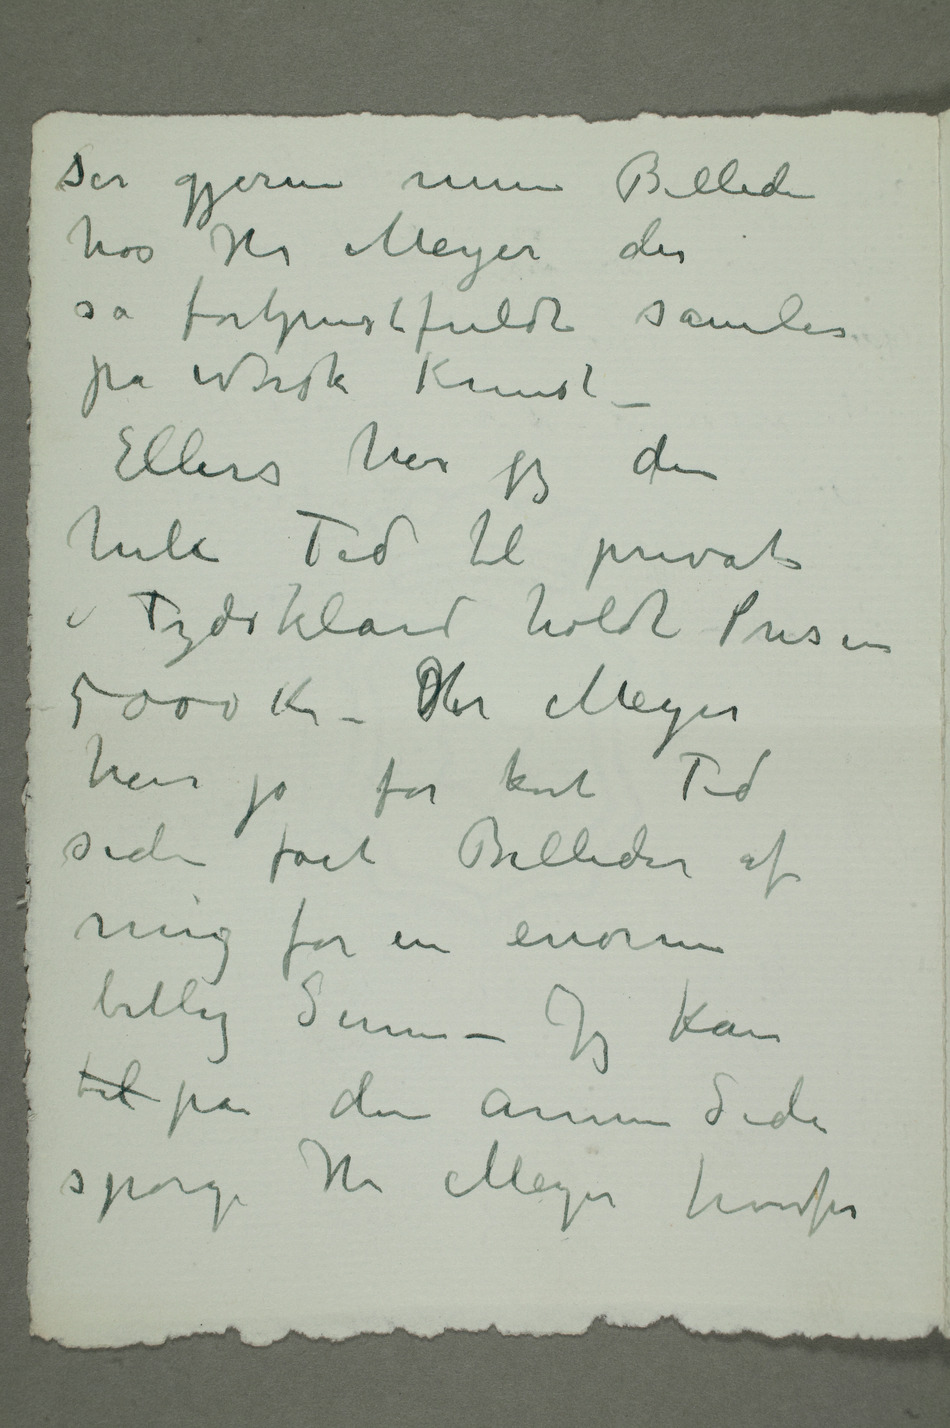 ser gjerne mine Billeder
hos Hr Meyer der
så fortjenstfuldt samler
på norsk Kunst –
Ellers har jeg den
hele Tid til private
i Tydskland holdt Prisen
5000 Kr – Hr Meyer
har jo for kort Tid
siden fået Billeder af
mig for en enorm
billig Sum – Jeg kan
til på den annen Side
spørge Hr Meyer hvorfor